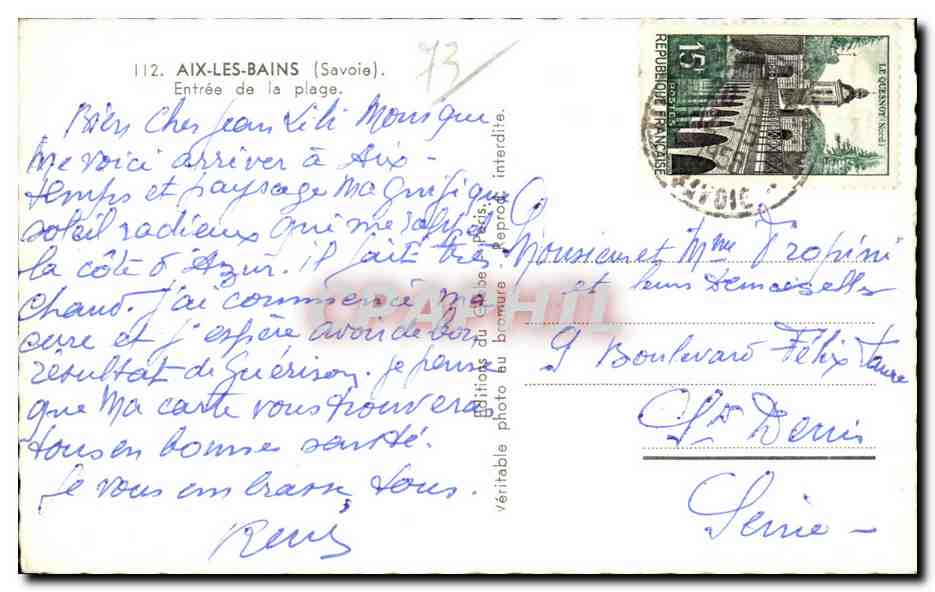 112. AIX-LES-BAINS (Savoie).
Entrée de la plage.
73
Bien Cher Jean Lili Monique
me voici arriver à Aix-
temps et paysage magnifique
soleil radieux qui me rappel
la côte d'Azur. il fait très
chaud. j'ai commencé ma
cure et j'espère avoir de bon
résultat de Guérison. je pense
que ma carte vous trouvera
tous en bonnes santé.
je vous embrasse tous.
René
Editions du Globe, Paris.
Véritable photo au bromure - Reprod. interdite.
RÉPUBLIQUE FRANÇAISE
15F
POSTES
LE QUESNOY (Nord)
SAVOIE
Monsieur et Mme Tropini
et leurs Demoiselles
9 Boulevard Félix Faure
St Denis
Seine -
CPAPHIL